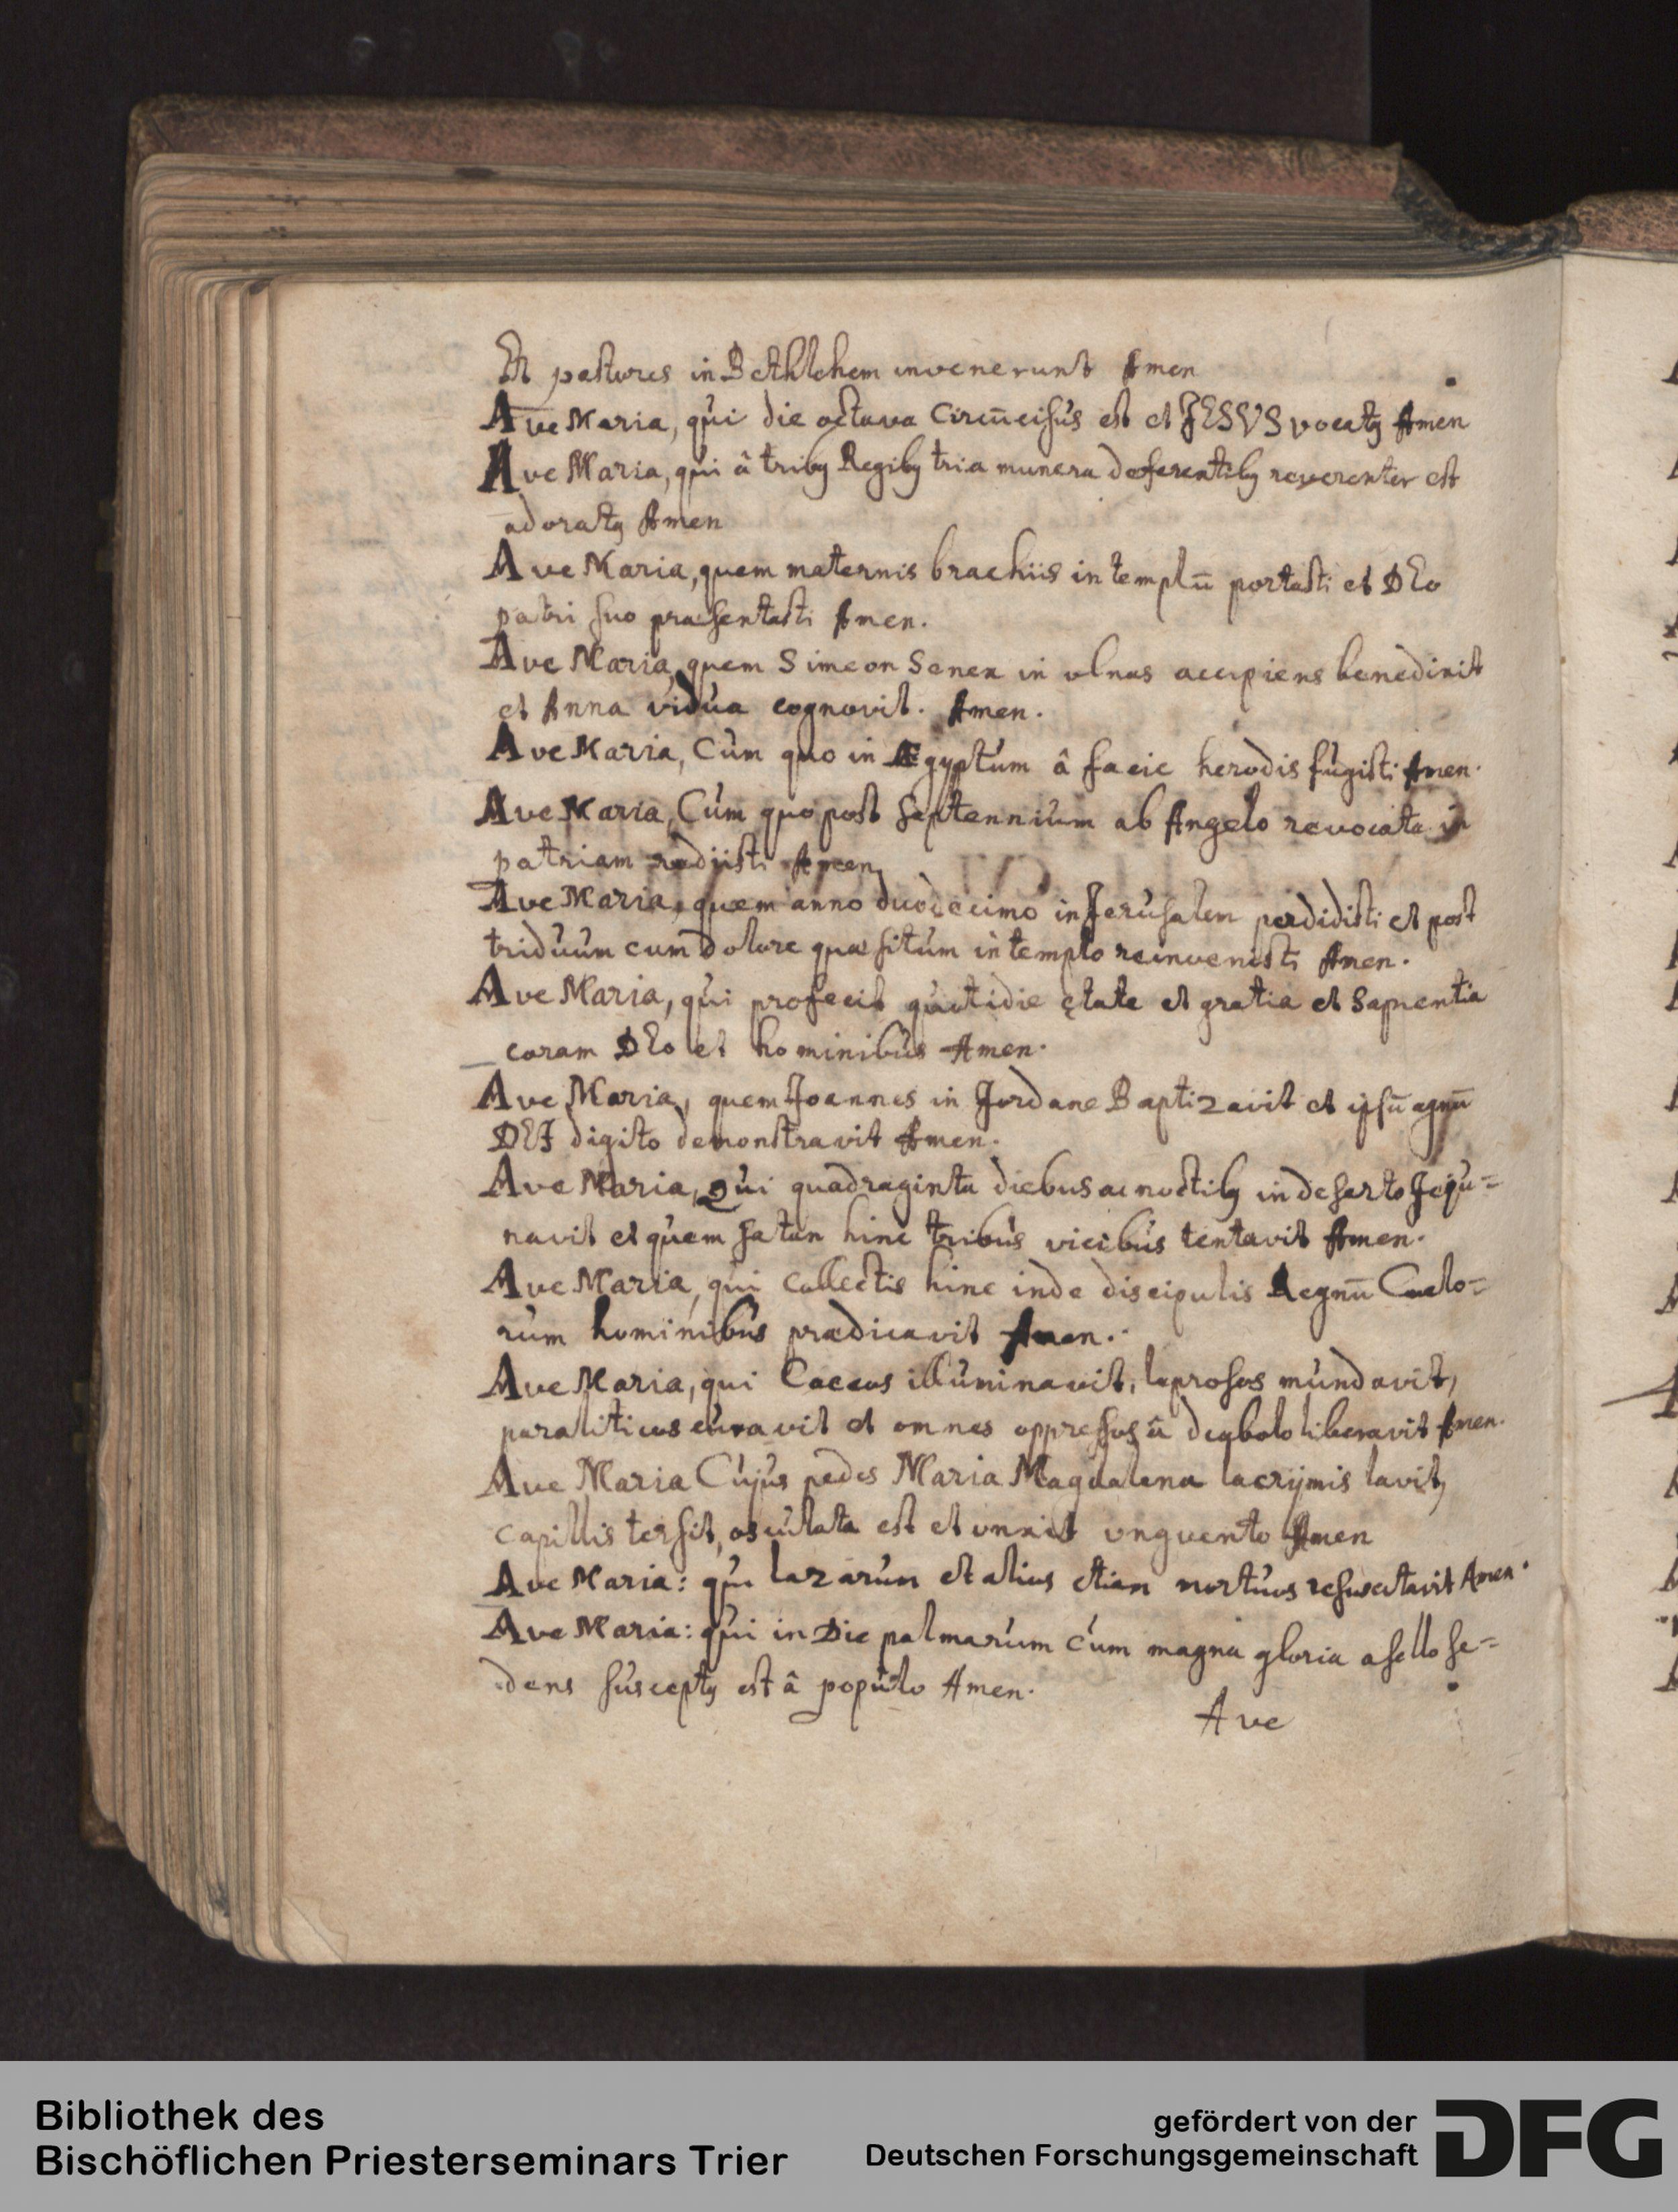 Et pastores in Bethlehem invenerunt Amen
Ave Maria, qui die octava Circūcisus est et JESVS vocatꝯ Amen
Ave Maria, qui â tribꝯ Regibꝯ tria munera deferentibꝯ reverenter est
adoratꝯ Amen
Ave Maria, quem maternis brachiis in templū portasti et DEo
patri suo præsentasti Amen.
Ave Maria, quem Simeon Senex in ulnas accipiens benedixit
et Anna vidua cognovit. Amen.
Ave Maria, Cum quo in Ægyptum â facie herodis fugisti Amen.
Ave Maria, Cum quo post Septennium ab Angelo revocata in
patriam rediisti Amen
Ave Maria, quem anno duodecimo in Jerusalem perdidisti et post
triduum cum dolore quæsitum in templo reinvenisti Amen.
Ave Maria, qui profecit quotidie ętate et gratia et Sapientia
coram DEo et hominibus Amen.
Ave Maria, quem Joannes in Jordane Baptizavit et ipsū agnū
DEI digito demonstravit Amen.
Ave Maria, Qui quadraginta diebus ac noctibꝯ in deserto Jeju=
navit et quem satan hinc tribus vicibus tentavit Amen.
Ave Maria, qui Collectis hinc inde discipulis Regnū Cælo=
rum hominibus prædicavit Amen.
Ave Maria, qui Cæcos illuminavit, leprosos mundavit,
paraliticos curavit et omnes oppressos â diabolo liberavit Amen.
Ave Maria Cujus pedes Maria Magdalena lacrijmis lavit,
capillis tersit, osculata est et unxit unguento Amen
Ave Maria: qui lazarum et alios etiam mortuos resuscitavit Amen.
Ave Maria: qui in Die palmarum cum magna gloria asello se=
dens susceptꝯ est â populo Amen.
Ave
Bibliothek des
Bischöflichen Priesterseminars Trier
gefördert von der
Deutschen Forschungsgemeinschaft
DFG